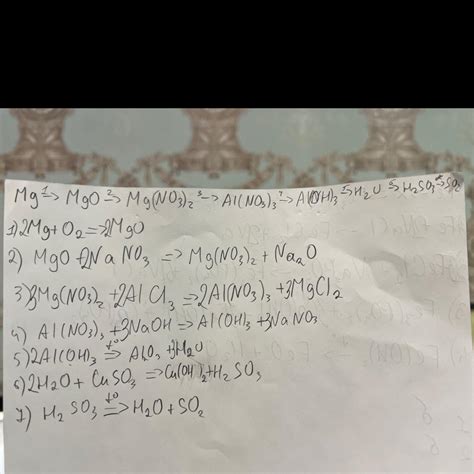 Mg ¹→ MgO ²→ Mg(NO₃)₂ ³→ Al(NO₃)₃ ⁴→ Al(OH)₃ ⁵→ H₂O ⁶→ H₂SO₃ ⁷→ SO₂
1) 2Mg + O₂ = 2MgO
2) MgO + 2NaNO₃ => Mg(NO₃)₂ + Na₂O
3) 3Mg(NO₃)₂ + 2AlCl₃ => 2Al(NO₃)₃ + 3MgCl₂
4) Al(NO₃)₃ + 3NaOH => Al(OH)₃ + 3NaNO₃
5) 2Al(OH)₃ t° => Al₂O₃ + 3H₂O
6) 2H₂O + CuSO₃ => Cu(OH)₂ + H₂SO₃
7) H₂SO₃ t° => H₂O + SO₂